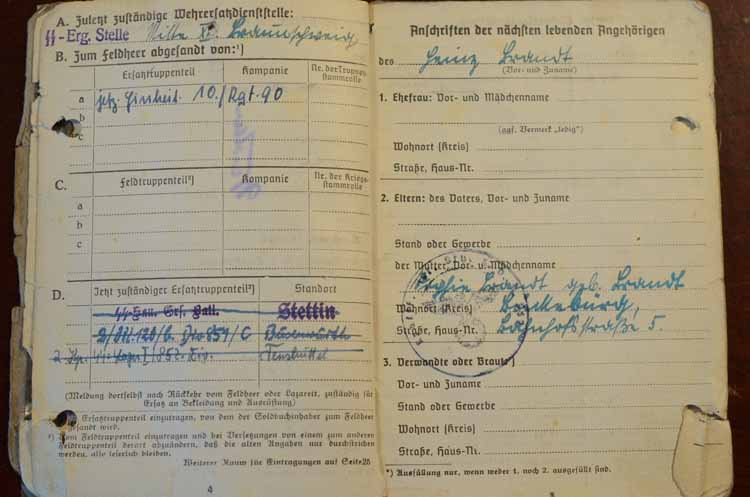 A. Zuletzt zuständige Wehrersatzdienststelle:
SS-Erg. Stelle Mitte XI. Braunschweig
B. Zum Feldheer abgesandt von:¹)
Ersatztruppenteil Kompanie Nr. der Truppen-
stammrolle
a jetz. Einheit. 10./Rgt. 90
b
c
C. Feldtruppenteil²) Kompanie Nr. der Kriegs-
stammrolle
a
b
c
D. Jetzt zuständiger Ersatztruppenteil²) Standort
Ers. Batl. Stettin
(Meldung dortselbst nach Rückkehr vom Feldheer oder Lazarett, zuständig für
Ersatz an Bekleidung und Ausrüstung)
Ersatztruppenteil einzutragen, von dem der Soldbuchinhaber zum Feldheer
gesandt wird.
²) Vom Feldtruppenteil einzutragen und bei Versetzungen von einem zum anderen
Feldtruppenteil derart abzuändern, daß die alten Angaben nur durchstrichen
werden, also leserlich bleiben.
Weiterer Raum für Eintragungen auf Seite
4
Anschriften der nächsten lebenden Angehörigen
des Heinz Brandt
(Vor- und Zuname)
1. Ehefrau: Vor- und Mädchenname
(ggf. Vermerk „ledig“)
Wohnort (Kreis)
Straße, Haus-Nr.
2. Eltern: des Vaters, Vor- und Zuname
Stand oder Gewerbe
der Mutter, Vor- u. Mädchenname
Sophie Brandt geb. Brandt
Wohnort (Kreis) Bückeburg,
Straße, Haus-Nr. Bahnhofstraße 5.
3. Verwandte oder Braut:*)
Vor- und Zuname
Stand oder Gewerbe
Wohnort (Kreis)
Straße, Haus-Nr.
*) Ausfüllung nur, wenn weder 1. noch 2. ausgefüllt sind.